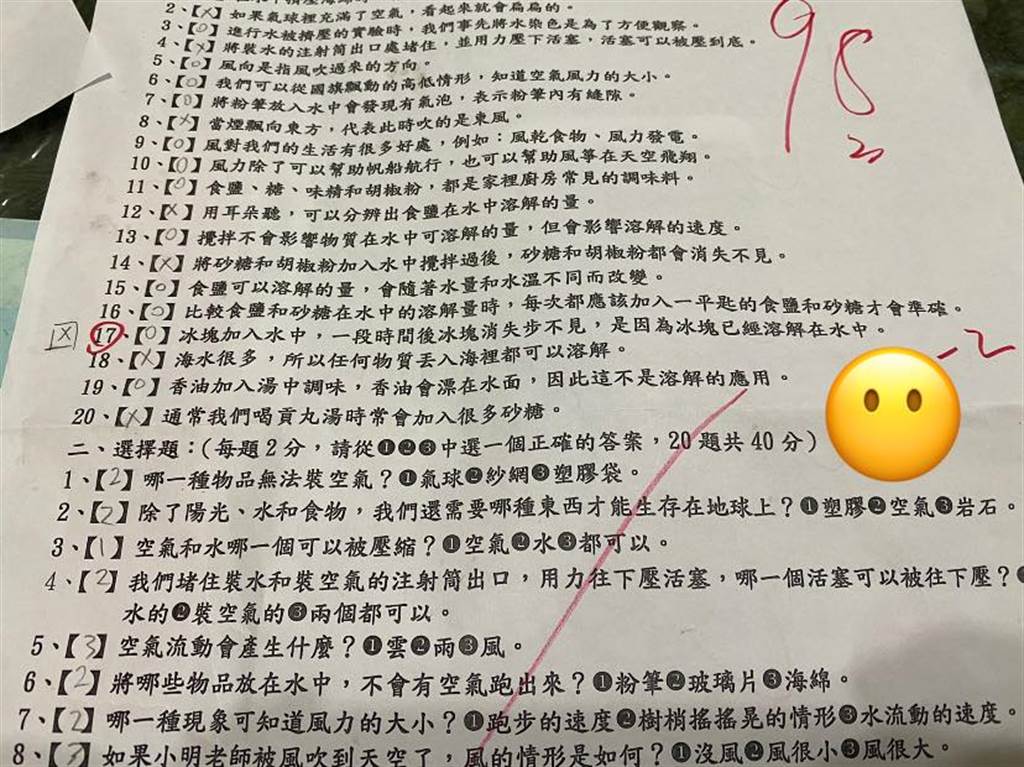 2、【X】如果氣球裡充滿了空氣，看起來就會扁扁的。
3、【O】進行水被擠壓的實驗時，我們事先將水染色是為了方便觀察。
4、【X】將裝水的注射筒出口處堵住，並用力壓下活塞，活塞可以被壓到底。
5、【O】風向是指風吹過來的方向。
6、【O】我們可以從國旗飄動的高低情形，知道空氣風力的大小。
7、【O】將粉筆放入水中會發現有氣泡，表示粉筆內有縫隙。
8、【X】當煙飄向東方，代表此時吹的是東風。
9、【O】風對我們的生活有很多好處，例如：風乾食物、風力發電。
10、【O】風力除了可以幫助帆船航行，也可以幫助風箏在天空飛翔。
11、【O】食鹽、糖、味精和胡椒粉，都是家裡廚房常見的調味料。
12、【X】用耳朵聽，可以分辨出食鹽在水中溶解的量。
13、【O】攪拌不會影響物質在水中可溶解的量，但會影響溶解的速度。
14、【X】將砂糖和胡椒粉加入水中攪拌過後，砂糖和胡椒粉都會消失不見。
15、【O】食鹽可以溶解的量，會隨著水量和水溫不同而改變。
16、【O】比較食鹽和砂糖在水中的溶解量時，每次都應該加入一平匙的食鹽和砂糖才會準確。
X 17、【O】冰塊加入水中，一段時間後冰塊消失步不見，是因為冰塊已經溶解在水中。
18、【X】海水很多，所以任何物質丟入海裡都可以溶解。
19、【O】香油加入湯中調味，香油會漂在水面，因此這不是溶解的應用。
20、【X】通常我們喝貢丸湯時常會加入很多砂糖。
98
-2
二、選擇題：（每題2分，請從❶❷❸中選一個正確的答案，20題共40分）
1、【2】哪一種物品無法裝空氣？❶氣球❷紗網❸塑膠袋。
2、【2】除了陽光、水和食物，我們還需要哪種東西才能生存在地球上？❶塑膠❷空氣❸岩石。
3、【1】空氣和水哪一個可以被壓縮？❶空氣❷水❸都可以。
4、【2】我們堵住裝水和裝空氣的注射筒出口，用力往下壓活塞，哪一個活塞可以被往下壓？
水的❷裝空氣的❸兩個都可以。
5、【3】空氣流動會產生什麼？❶雲❷雨❸風。
6、【2】將哪些物品放在水中，不會有空氣跑出來？❶粉筆❷玻璃片❸海綿。
7、【2】哪一種現象可知道風力的大小？❶跑步的速度❷樹梢搖搖晃的情形❸水流動的速度。
8、【3】如果小明老師被風吹到天空了，風的情形是如何？❶沒風❷風很小❸風很大。